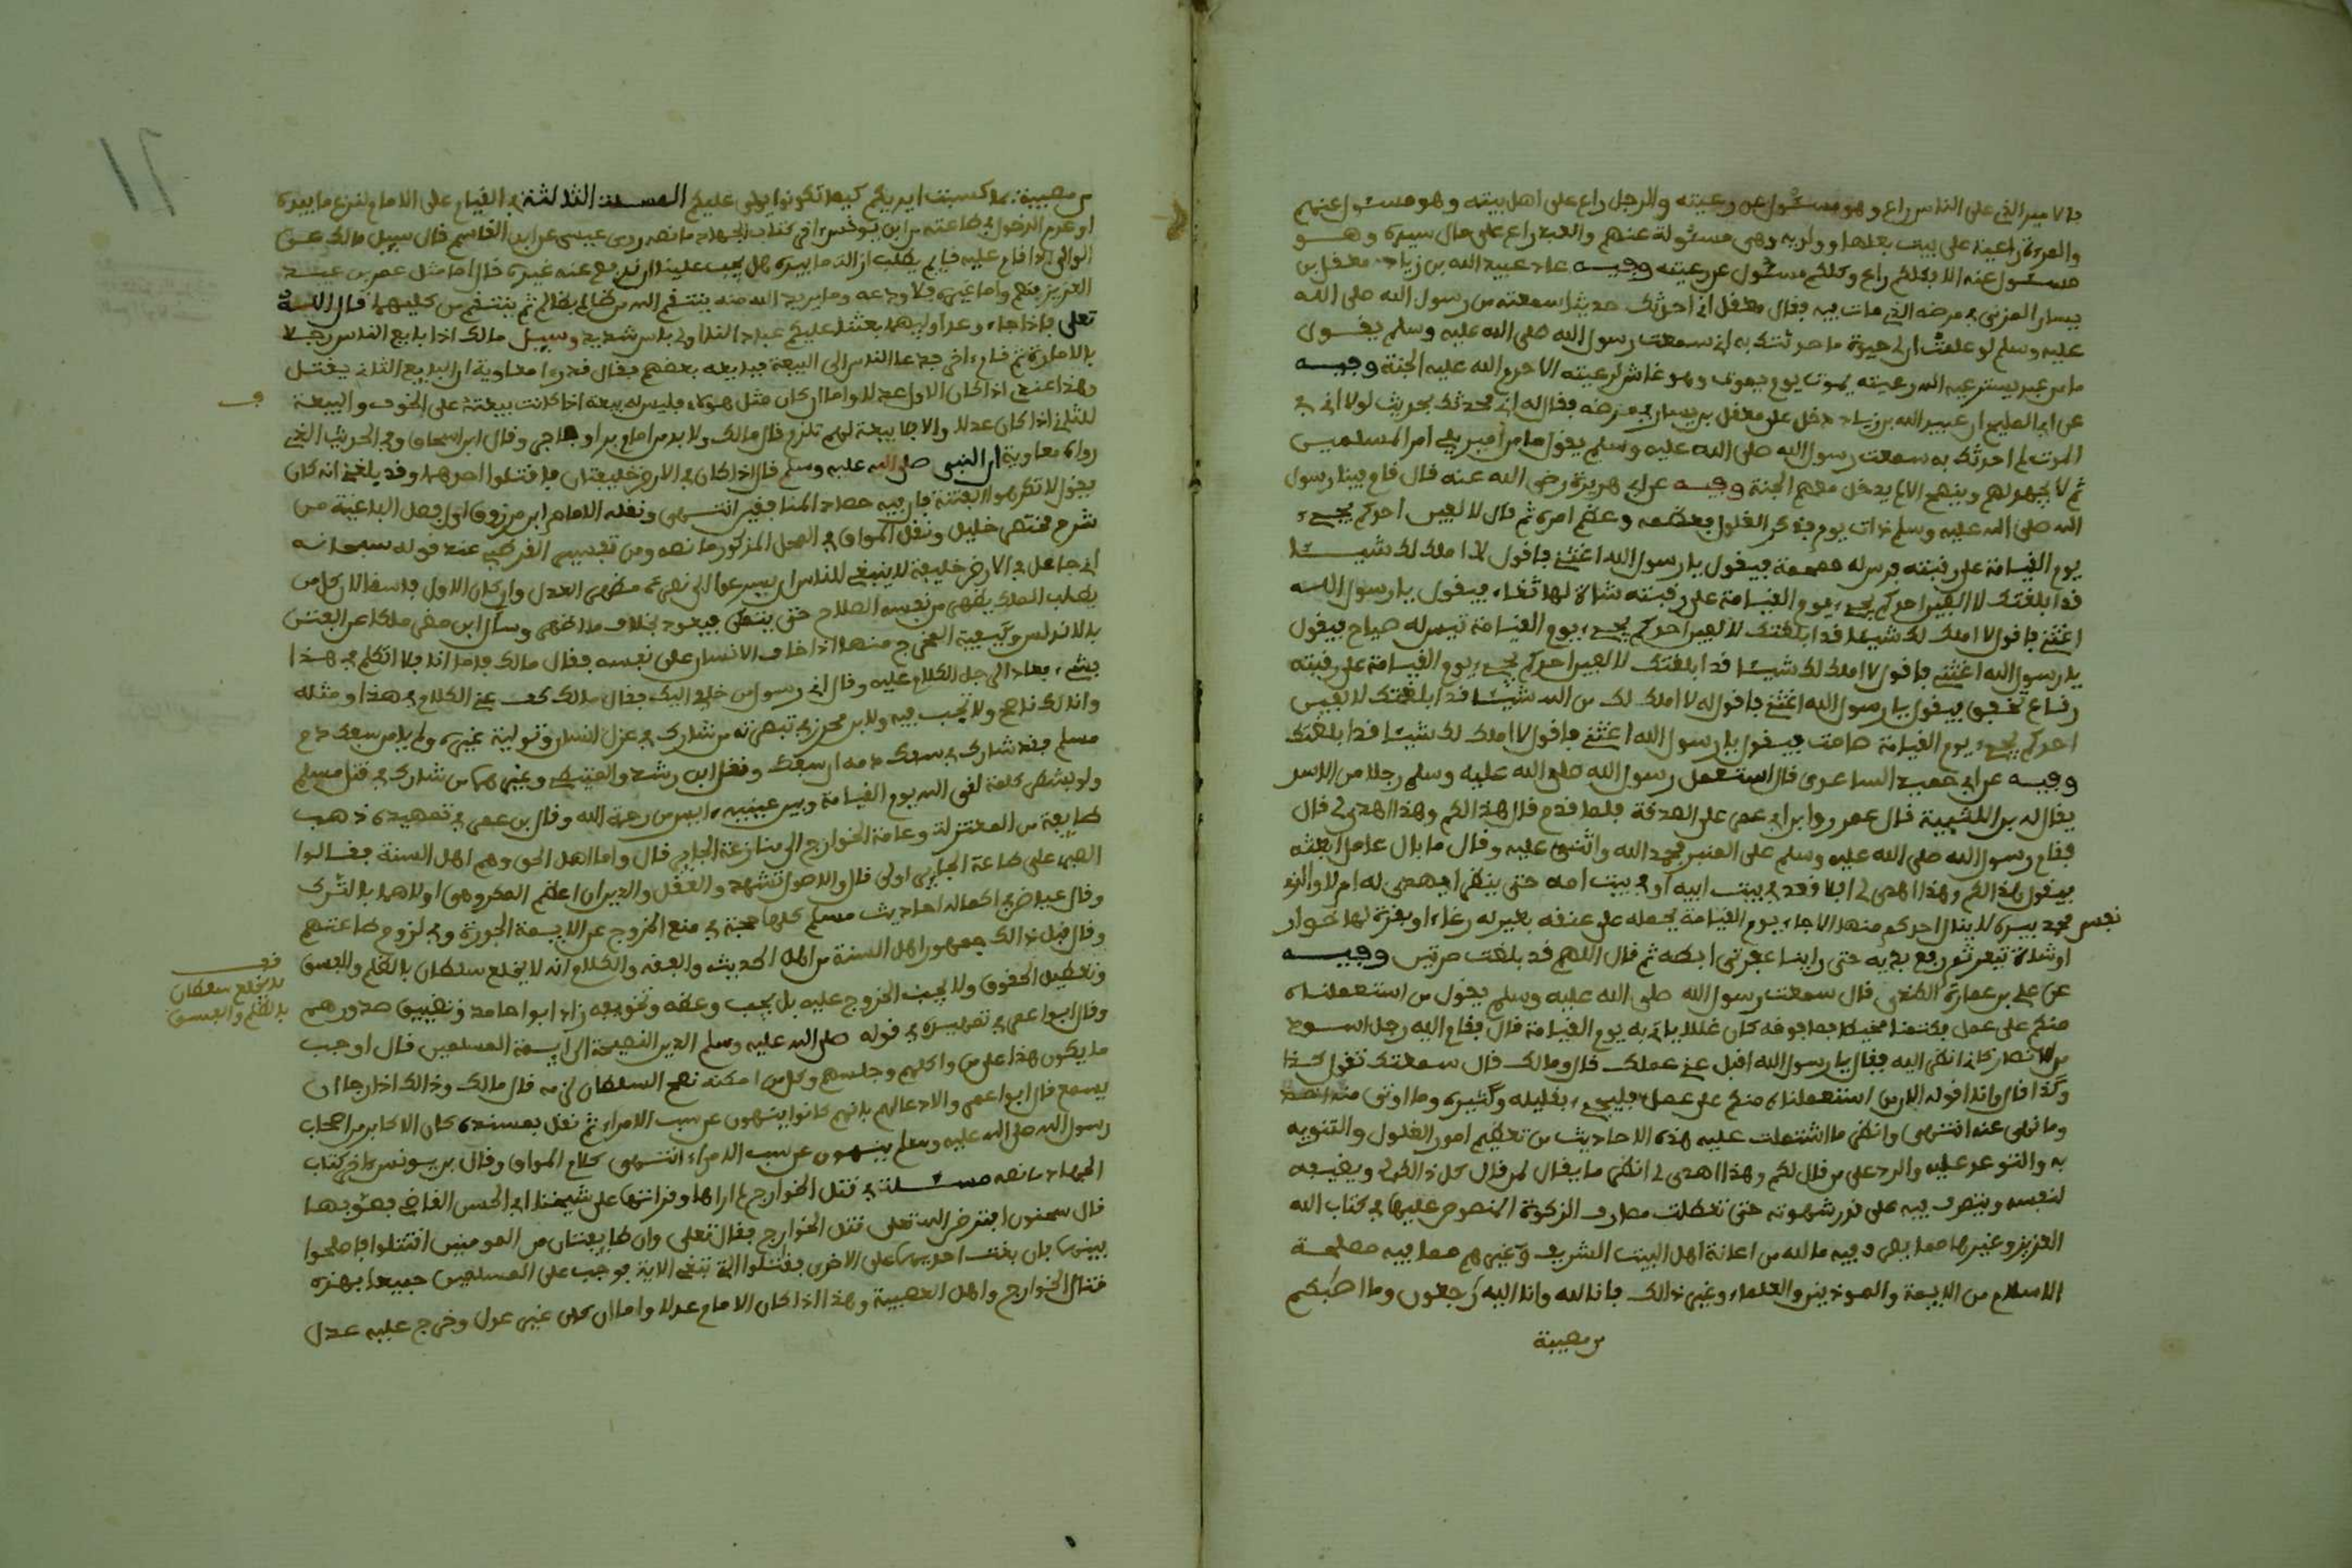 فالامير الذي على الناس راع وهو مسئول عن رعيته والرجل راع على اهل بيته وهو مسئول عنهم
والمرءة راعية على بيت بعلها وولده وهي مسئولة عنهم والعبد راع على مال سيده وهو
مسئول عنه الا فكلكم راع وكلكم مسئول عن رعيته وفيه عاد عبيد الله بن زياد معقل بن
يسار المزني في مرضه الذي مات فيه فقال معقل اني احدثك حديثا سمعته من رسول الله صلى الله
عليه وسلم لو علمت ان لي حيوة ما حدثتك به اني سمعت رسول الله صلى الله عليه وسلم يقول
ما من عبد يسترعيه الله رعيته يموت يوم يموت وهو غاش لرعيته الا حرم الله عليه الجنة وفيه
عن ابي المليح ان عبيد الله بن زياد دخل على معقل بن يسار في مرضه فقال له اني محدثك بحديث لولا اني في
الموت لم احدثك به سمعت رسول الله صلى الله عليه وسلم يقول ما من امير يلي امر المسلمين
ثم لا يجهد لهم وينصح الا لم يدخل معهم الجنة وفيه عن ابي هريرة رضي الله عنه قال قام فينا رسول
الله صلى الله عليه وسلم ذات يوم فذكر الغلول فعظمه وعظم امره ثم قال لا الفين احدكم يجيء
يوم القيامة على رقبته فرس له حمحمة فيقول يا رسول الله اغثني فاقول لا املك لك شيئا
قد ابلغتك لا الفين احدكم يجيء يوم القيامة على رقبته شاة لها ثغاء فيقول يا رسول الله
اغثني فاقول لا املك لك شيئا قد ابلغتك لا الفين احدكم يجيء يوم القيامة نفس له صياح فيقول
يا رسول الله اغثني فاقول لا املك لك شيئا قد ابلغتك لا الفين احدكم يجيء يوم القيامة على رقبته
رقاع تخفق فيقول يا رسول الله اغثني فاقول له لا املك لك من الله شيئا قد ابلغتك لا الفين
احدكم يجيء يوم القيامة صامت فيقول يا رسول الله اغثني فاقول لا املك لك شيئا قد ابلغتك
وفيه عن ابي حميد الساعدي قال استعمل رسول الله صلى الله عليه وسلم رجلا من الاسد
يقال له بن اللتبية قال عمرو وابن ابي عمر على الصدقة فلما قدم قال هذا لكم وهذا اهدي لي قال
فقام رسول الله صلى الله عليه وسلم على المنبر فحمد الله واثنى عليه وقال ما بال عامل ابعثه
فيقول هذا لكم وهذا اهدي لي افلا قعد في بيت ابيه او في بيت امه حتى ينظر ايهدى له ام لا والذي
نفس محمد بيده لا ينال احدكم منها الا جاء يوم القيامة يحمله على عنقه بعير له رغاء او بقرة لها خوار
او شاة تيعر ثم رفع يديه حتى راينا عفرتي ابطه ثم قال اللهم قد بلغت مرتين وفيه
عن علي بن عمارة الكندي قال سمعت رسول الله صلى الله عليه وسلم يقول من استعملناه
منكم على عمل فكتمنا مخيطا فما فوقه كان غللا ياتي به يوم القيامة قال فقام اليه رجل اسود
من الانصار كاني انظر اليه فقال يا رسول الله اقبل عني عملك قال وما لك قال سمعتك تقول كذا
وكذا قال وانا اقوله الان من استعملناه منكم على عمل فليجيء بقليله وكثيره وما اوتي منه اخذ
وما نهي عنه انتهى وانظر ما اشتملت عليه هذه الاحاديث من تعظيم امور الغلول والتنويه
به والتوعد عليه والرد على من قال لكم وهذا اهدي لي انظر ما يقال لمن قال كل ذا لك لي ويضيفه
لنفسه ويتصرف فيه على قدر شهوته حتى تعطلت مصارف الزكوة المنصوص عليها في كتاب الله
العزيز وغيرها مما بقي وفيه ما لله من اعانة اهل البيت الشريف وغيرهم مما فيه مصلحة
الاسلام من الايمة والموذنين والعلماء وغير ذالك فانا لله وانا اليه رجعون وما اصبكم
من مصيبة
من مصيبة فبما كسبت ايديكم كيفما تكونوا يولى عليكم المسئلة الثالثة في القيام على الامام لنزع ما بيده
او عدم الدخول في طاعته من ابن يونس اخر كتاب الجهاد ما نصه روى عيسى عن ابن القاسم قال سيل مالك عن
الوالي اذا قام عليه قايم يطلب ازالة ما بيده هل يجب علينا ان ندفع عنه غيره قال اما مثل عمر بن عبد
العزيز فنعم واما غيره فلا ودعه وما يريد الله منه ينتقم الله من ظالم بظالم ثم ينتقم من كليهما قال الله
تعلى فاذا جاء وعد اوليهما بعثنا عليكم عبادا لنا اولي باس شديد وسيل مالك اذا بايع الناس رجلا
بالامارة ثم قام اخر فدعا الناس الى البيعة فبايعه بعضهم فقال قد روى معاوية ان المبايع الثاني يقتل
وهذا عندي اذا كان الاول عدلا واما ان كان مثل هولاء فليس له بيعة اذا كانت بيعته على الخوف والبيعة
للثاني اذا كان عدلا والا فلا بيعة لهم تلزم قال مالك ولا بد من امام بر او فاجر وقال ابن اسحاق وفي الحديث الذي
رواه معاوية ان النبي صلى الله عليه وسلم قال اذا كان في الارض خليفتان فاقتلوا احدهما وقد بلغني انه كان
يقول لا تكرهوا الفتنة فان فيه حصاد المنافقين انتهى ونقله الامام ابن مرزوق اول فصل الباغية من
شرح مختصر خليل ونقل المواق في المحل المذكور ما نصه ومن تفسير القرطبي عند قوله سبحانه
اني جاعل في الارض خليفة لا ينبغي للناس ان يسرعوا الى نصرة مظهر العدل وان كان الاول فاسقا لان كل من
يطلب الملك يظهر من نفسه الصلاح حتى يتمكن فيعود بخلاف ما اظهر وسال ابن مضر ملكا عن الفتن
بالاندلس وكيفية المخرج منها اذا خاف الانسان على نفسه فقال مالك فاما انا فلا اتكلم في هذا
بشيء فعاد الرجل الكلام عليه وقال اني رسول من خلفي اليك فقال مالك كف عن الكلام في هذا ومثله
وانا لك ناصح ولا تجب فيه ولابن محرز في تبصرته من شارك في عزل انسان وتولية غيره ولم يامن سفك دم
مسلم فقد شارك في سفك دمه ان سفك ونقل ابن رشد والعتبي وغيرهما من شارك في قتل مسلم
ولو بشطر كلمة لقي الله يوم القيامة وبين عينيه ايس من رحمة الله وقال بن عمر في تمهيده ذهب
طايفة من المعتزلة وعامة الخوارج الى منازعة الجاير قال واما اهل الحق وهم اهل السنة فقالوا
الصبر على طاعة الجاير اولى قال والاصول تشهد والعقل والدين ان اعظم المكروهين اولاهما بالترك
وقال عياض في اكماله احاديث مسلم كلها حجة في منع الخروج عن الايمة الجورة وفي لزوم طاعتهم
وقال قبل ذالك جمهور اهل السنة من اهل الحديث والفقه والكلام انه لا يخلع سلطان بالظلم والفسق
وتعطيل الحقوق ولا يجب الخروج عليه بل يجب وعظه وتخويفه زاد ابو حامد وتضييق صدورهم
وقال ابو عمر في تمهيده في قوله صلى الله عليه وسلم الدين النصيحة الى ايمة المسلمين قال اوجب
ما يكون هذا على من واكلهم وجالسهم وكل من امكنه نصح السلطان لزمه قال مالك وذالك اذا رجا ان
يسمع قال ابو عمر والا دعا لهم فانهم كانوا ينهون عن سب الامراء ثم نقل بمسنده كان الاكابر من اصحاب
رسول الله صلى الله عليه وسلم ينهون عن سب الامراء انتهى كلام المواق وقال بن يونس اخر كتاب
الجهاد ما نصه مسئلة في قتل الخوارج لم ارها وقراتها على شيخنا ابي الحسن القاضي فصوبها
قال سحنون افترض الله تعلى قتل الخوارج فقال تعلى وان طايفتان من المومنين اقتتلوا فاصلحوا
بينهما فان بغت احديهما على الاخرى فقتلوا التي تبغي الاية فوجب على المسلمين جميعا بهذه
قتال الخوارج واهل العصبية وهذا اذا كان الامام عدلا واما ان كان غير عدل وخرج عليه عدل
قف
لا يخلع سلطان
بالظلم والفسق